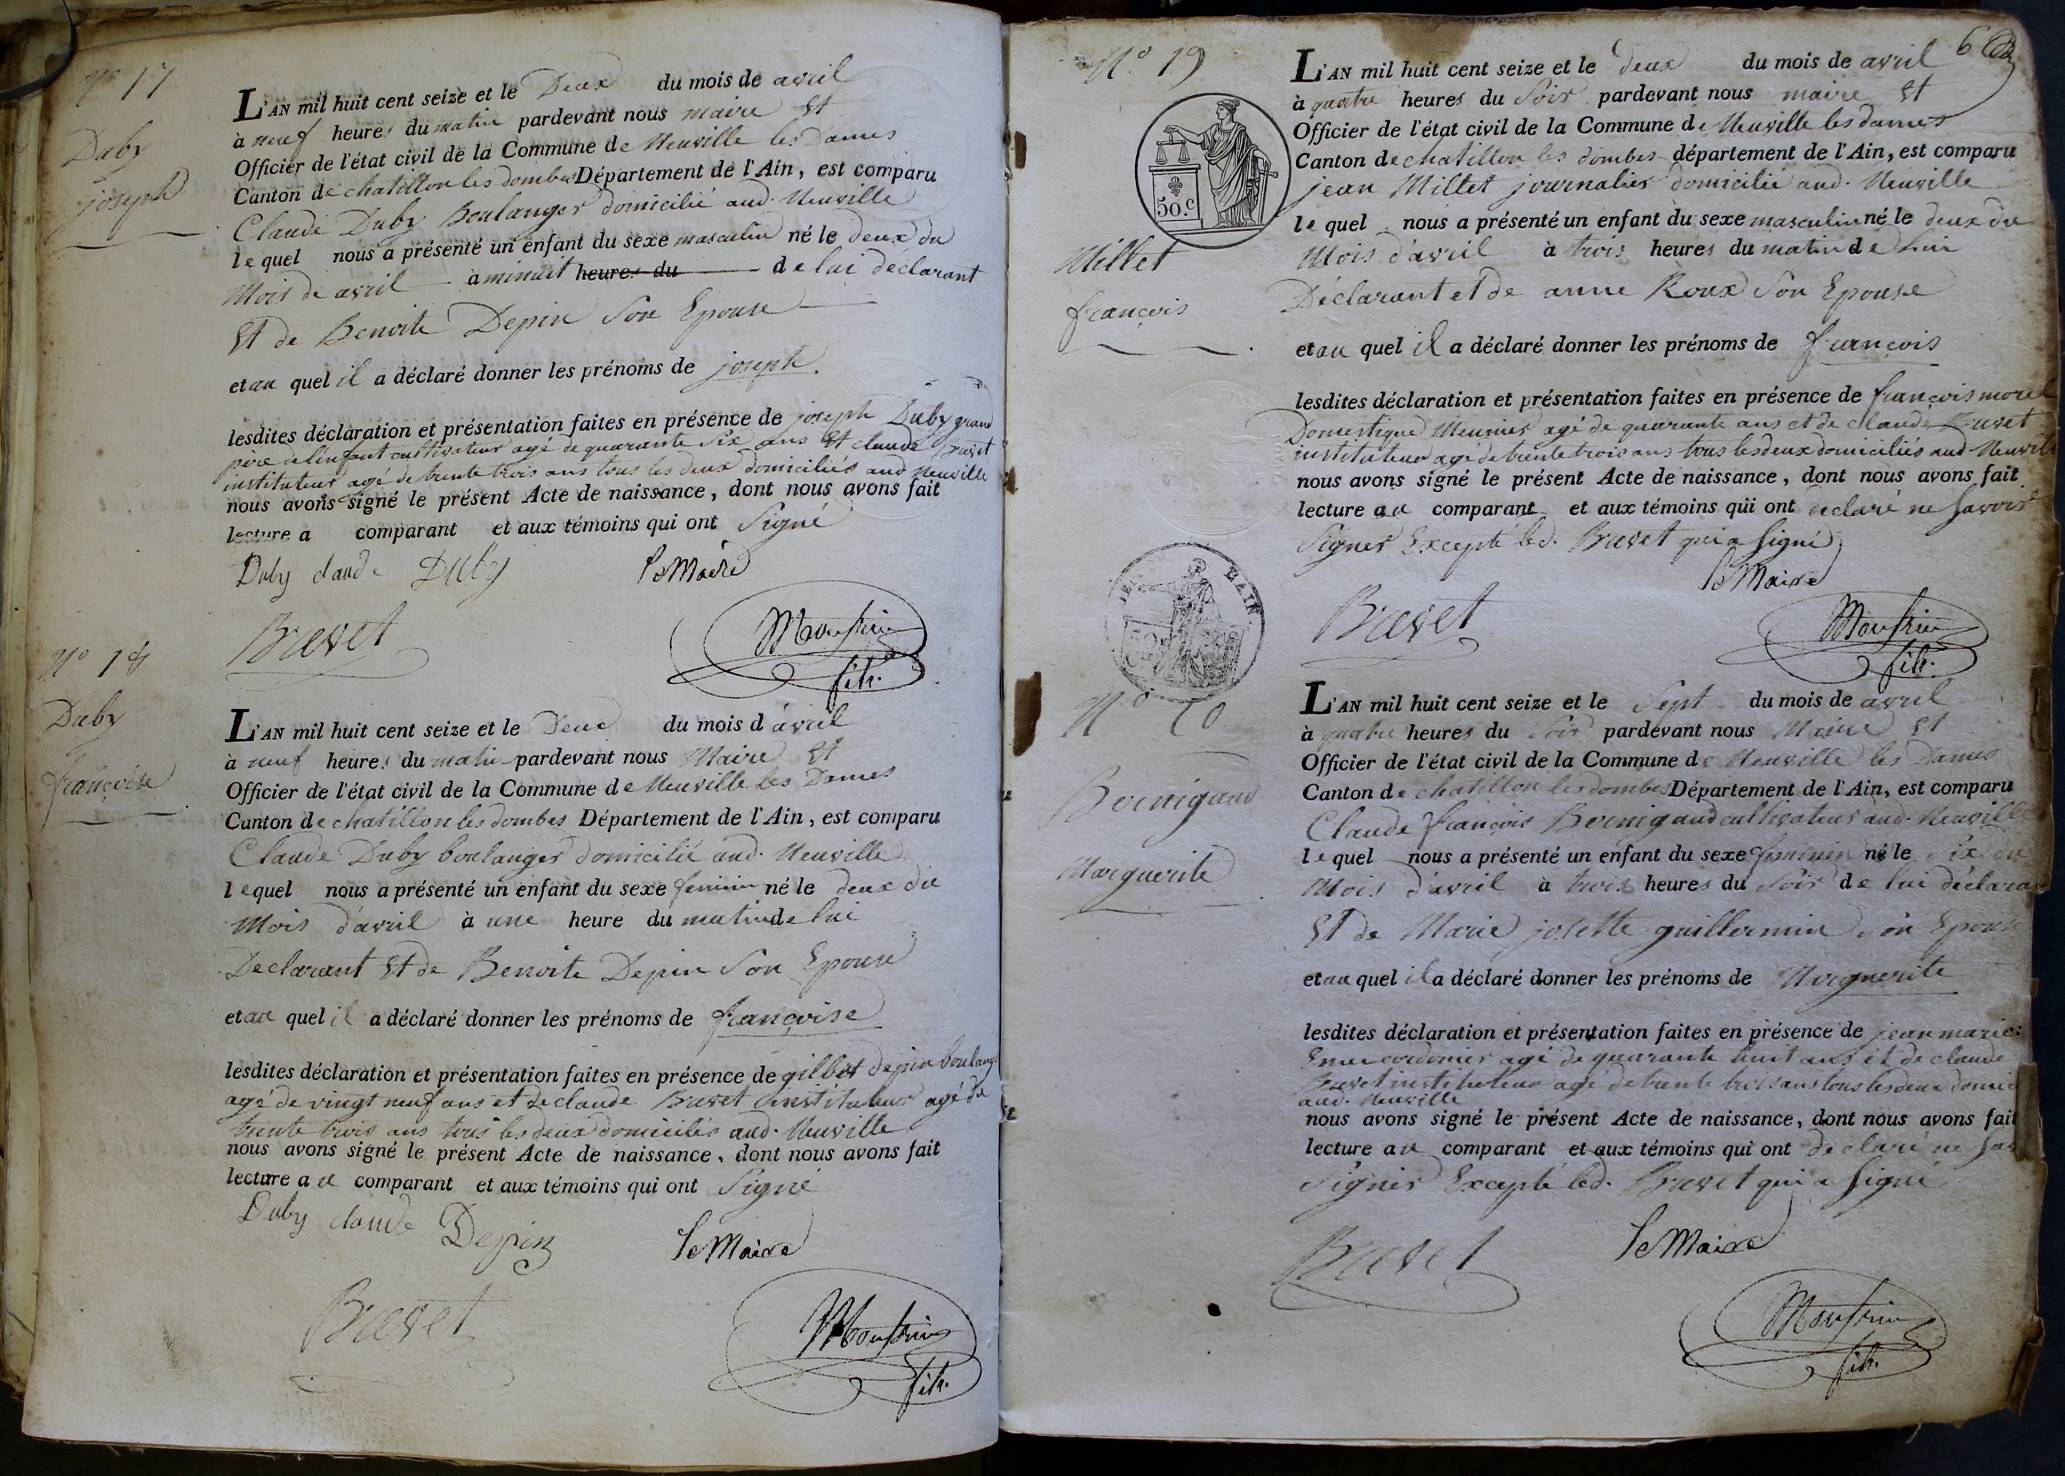 N° 17
Duby
joseph
L'AN mil huit cent seize et le Deux du mois de avril
à neuf heures du matin pardevant nous maire Et
Officier de l'état civil de la Commune de Neuville les Dames
Canton de chatillon les dombes Département de l'Ain, est comparu
Claude Duby Boulanger domicilié aud. Neuville
lequel nous a présenté un enfant du sexe masculin né le deux du
Mois de avril à minuit heures du de lui déclarant
Et de Benoite Depin Son Epouse
et au quel il a déclaré donner les prénoms de joseph.
lesdites déclaration et présentation faites en présence de joseph Duby grand
père de l'enfant cultivateur agé de quarante Six ans Et claude Buvet
instituteur agé de trente trois ans tous les deux domiciliés aud Neuville
nous avons signé le présent Acte de naissance, dont nous avons fait
lecture a comparant et aux témoins qui ont Signé
Duby claude Duby le Maire
Buvet Monfrin
fils.
N° 18
Duby
françoise
L'AN mil huit cent seize et le Deux du mois d'avril
à neuf heures du matin pardevant nous Maire Et
Officier de l'état civil de la Commune de Neuville les Dames
Canton de chatillon les dombes Département de l'Ain, est comparu
Claude Duby boulanger domicilié aud. Neuville
lequel nous a présenté un enfant du sexe feminin né le deux du
Mois d'avril à une heure du matin de lui
Declarant Et de Benoite Depin Son Epouse
et au quel il a déclaré donner les prénoms de françoise
lesdites déclaration et présentation faites en présence de gilbert depin boulang
agé de vingt neuf ans et de claude Buvet instituteur agé de
trente trois ans tous les deux domiciliés aud. Neuville
nous avons signé le présent Acte de naissance, dont nous avons fait
lecture au comparant et aux témoins qui ont Signé
Duby claude Depin le Maire
Buvet Monfrin
fils.
6
N° 19
50.c
Millet
françois
L'AN mil huit cent seize et le deux du mois de avril
à quatre heures du Soir pardevant nous maire Et
Officier de l'état civil de la Commune de Neuville les dames
Canton de chatillon les dombes département de l'Ain, est comparu
jean Millet journalier domicilié aud. Neuville
lequel nous a présenté un enfant du sexe masculin né le deux du
Mois d'avril à trois heures du matin de Lui
Déclarant et de anne Roux Son Epouse
et au quel il a déclaré donner les prénoms de françois
lesdites déclaration et présentation faites en présence de françois morel
Domestique Meunier agé de quarante ans et de claude Buvet
instituteur agé de trente trois ans tous les deux domiciliés aud Neuvill
nous avons signé le présent Acte de naissance, dont nous avons fait
lecture au comparant et aux témoins qui ont declaré ne Savoir
Signer Excepté led. Buvet qui a Signé
le Maire
Buvet Monfrin
fils.
N° 20
Bernigaud
Marguerite
L'AN mil huit cent seize et le Sept du mois de avril
à quatre heures du Soir pardevant nous Maire Et
Officier de l'état civil de la Commune de Neuville les Dames
Canton de chatillon les dombes Département de l'Ain, est comparu
Claude françois Bernigaud cultivateur aud. Neuville
lequel nous a présenté un enfant du sexe feminin né le Six du
Mois d'avril à trois heures du Soir de lui déclara
Et de Marie josette guillermin Son Epouse
et au quel il a déclaré donner les prénoms de Marguerite
lesdites déclaration et présentation faites en présence de jean marie
cordonier agé de quarante huit ans et de claude
Buvet instituteur agé de trente trois ans tous les deux domic
aud. Neuville
nous avons signé le présent Acte de naissance, dont nous avons fait
lecture au comparant et aux témoins qui ont declaré ne Sav
Signer Excepté led. Buvet qui a Signé
Buvet le Maire
Monfrin
fils.